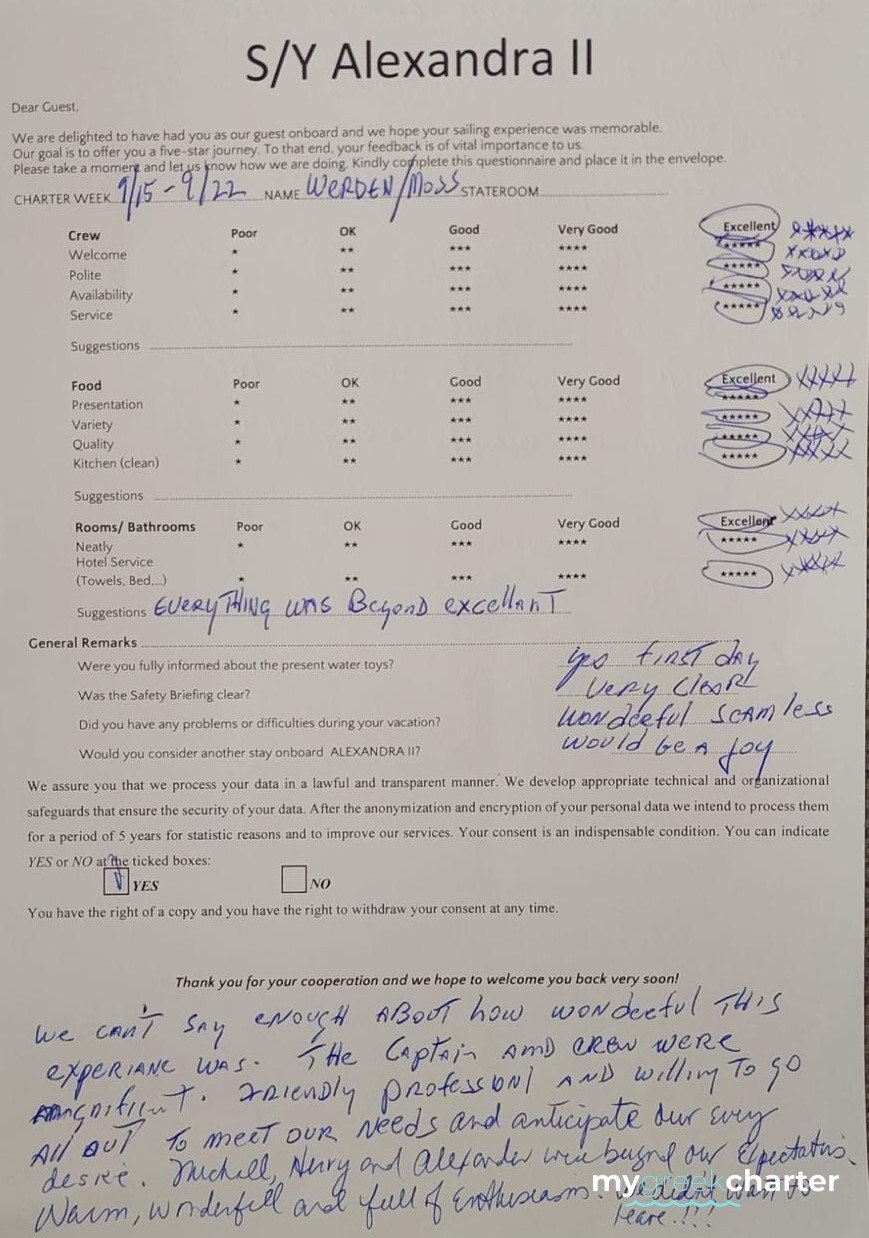 S/Y Alexandra II
Dear Guest,
We are delighted to have had you as our guest onboard and we hope your sailing experience was memorable.
Our goal is to offer you a five-star journey. To that end, your feedback is of vital importance to us.
Please take a moment and let us know how we are doing. Kindly complete this questionnaire and place it in the envelope.
CHARTER WEEK 9/15 - 9/22 NAME WERDEN/MOSS STATEROOM
Crew Poor OK Good Very Good Excellent
Welcome * ** *** **** *****
Polite * ** *** **** *****
Availability * ** *** **** *****
Service * ** *** **** *****
Suggestions
Food Poor OK Good Very Good Excellent
Presentation * ** *** **** *****
Variety * ** *** **** *****
Quality * ** *** **** *****
Kitchen (clean) * ** *** **** *****
Suggestions
Rooms/ Bathrooms Poor OK Good Very Good Excellent
Neatly * ** *** **** *****
Hotel Service
(Towels, Bed,...) * ** *** **** *****
Suggestions EVERYTHING WAS BEYOND excellANT
General Remarks
Were you fully informed about the present water toys? yes FIRST dAY
Was the Safety Briefing clear? Very CleaR
Did you have any problems or difficulties during your vacation? WONdeeful SCAMless
Would you consider another stay onboard ALEXANDRA II? would be A Joy
We assure you that we process your data in a lawful and transparent manner. We develop appropriate technical and organizational
safeguards that ensure the security of your data. After the anonymization and encryption of your personal data we intend to process them
for a period of 5 years for statistic reasons and to improve our services. Your consent is an indispensable condition. You can indicate
YES or NO at the ticked boxes:
YES NO
You have the right of a copy and you have the right to withdraw your consent at any time.
Thank you for your cooperation and we hope to welcome you back very soon!
We CAN'T SAy eNOUGH ABOUT how WONdeeful THIS
experiANC WAS. THE CAPTAIN AMD CREW WERE
FRIENDLY PROFESSIONl AND willing TO go
All OUT TO MEET OUR NeedS and anticipate our every
desire. Michell, Henry and Alexander were beyond our Expectations.
Warm, wonderfull and full of Enthusiasm. We didn't want to
leave.!!!
mygreekcharter